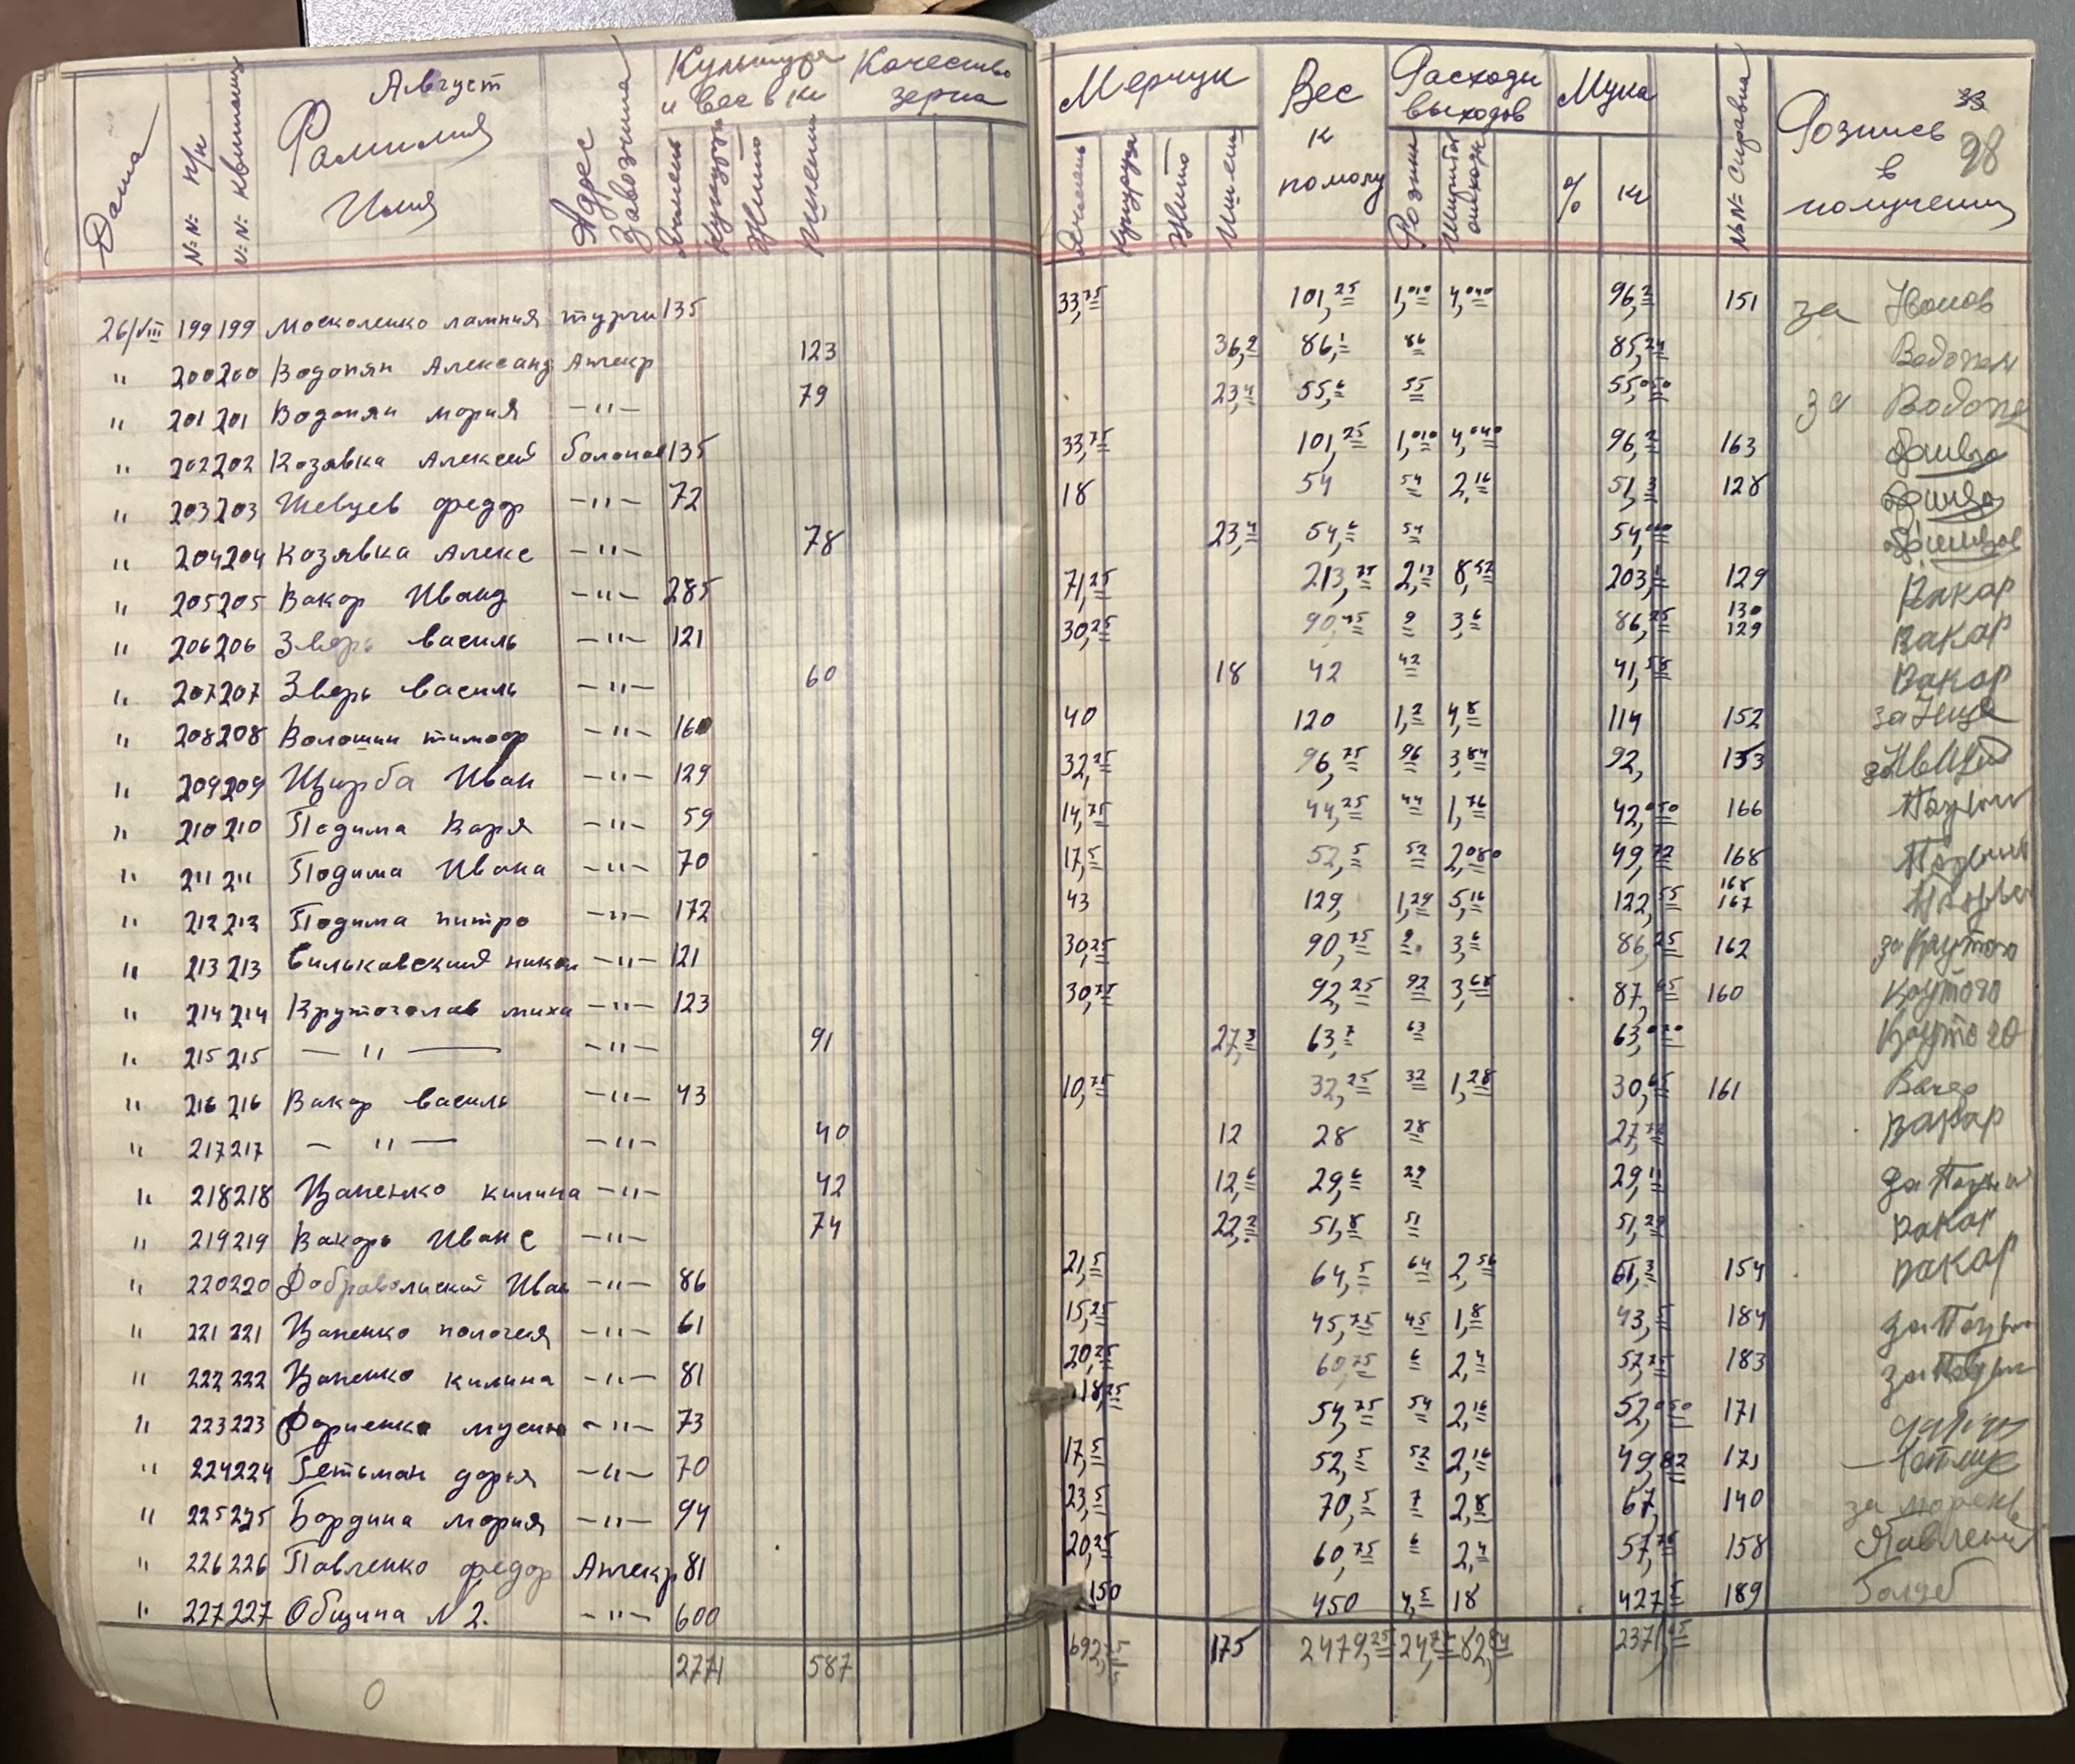 Август
Дата №№ п/п №№ квитанц Фамилия Имя Адрес завозчика Культура и вес в кг Качество зерна Мерчук Вес к помолу Расходы выходов Мука №№ справка Роспись в получении 33 98
Ячмень Кукуруза Жито Пшениц Ячмень Кукуруза Жито Пшениц % кг
26/VIII 199 199 Москоленко лампия турчи 135 33,75 101,25 1,010 4,040 96,2 151 за
" 200 200 Водопян Александ Аптекр 123 36,2 86,1 86 85,24
" 201 201 Водопян мория —"— 79 23,4 55,6 55 55,050 за
" 202 202 Козявка Алексей 135 33,75 101,25 1,010 4,040 96,2 163
" 203 203 Шевцев федор —"— 72 18 54 54 2,16 51,3 128
" 204 204 Козявка Алекс —"— 78 23,4 54,6 54 54,060
" 205 205 Вакор —"— 285 71,25 213,75 2,13 8,52 203,1 129 Вакар
" 206 206 Зверь василь —"— 121 30,25 90,75 9 3,6 86,25 130 129 Вакар
" 207 207 Зверь василь —"— 60 18 42 42 41,58 Вакар
" 208 208 Волошин тимофр —"— 160 40 120 1,2 4,8 114 152
" 209 209 Щирба Иван —"— 129 32,25 96,75 96 3,84 92, 153
" 210 210 Подима Варя —"— 59 14,75 44,25 44 1,76 42,050 166
" 211 211 Подима Ивана —"— 70 17,5 52,5 52 2,080 49,72 168
" 212 212 Подима питро —"— 172 43 129, 1,29 5,16 122,55 168 167
" 213 213 Сильковский никон —"— 121 30,25 90,75 9 3,6 86,25 162 за Крутого
" 214 214 Крутоголов миха —"— 123 30,75 92,25 92 3,68 87,65 160 Крутого
" 215 215 —"— —"— 91 27,3 63,7 63 63,070 Крутого
" 216 216 Вакор василь —"— 43 10,75 32,25 32 1,28 30,65 161
" 217 217 —"— —"— 40 12 28 28 27,72 Вакар
" 218 218 Цапенко килина —"— 42 12,6 29,6 29 29,11 за
" 219 219 Вакорь Иван с —"— 74 22,2 51,8 51 51,29 Вакар
" 220 220 Добравольский Иван —"— 86 21,5 64,5 64 2,56 61,3 154 Вакар
" 221 221 Цапенко пологея —"— 61 15,25 45,75 45 1,8 43,5 184 за
" 222 222 Цапенко килина —"— 81 20,25 60,75 6 2,4 57,75 183 за
" 223 223 —"— 73 18,25 54,75 54 2,16 52,050 171
" 224 224 Гетьман дория —"— 70 17,5 52,5 52 2,16 49,82 171
" 225 225 Бордина мория —"— 94 23,5 70,5 7 2,8 67, 140 за
" 226 226 Павленко федор Аптекр 81 20,25 60,75 6 2,4 57,75 158 Павленко
" 227 227 Община N 2. —"— 600 150 450 4,5 18 427,5 189
2771 587 692,75 175 2479,25 82,84 2371,45